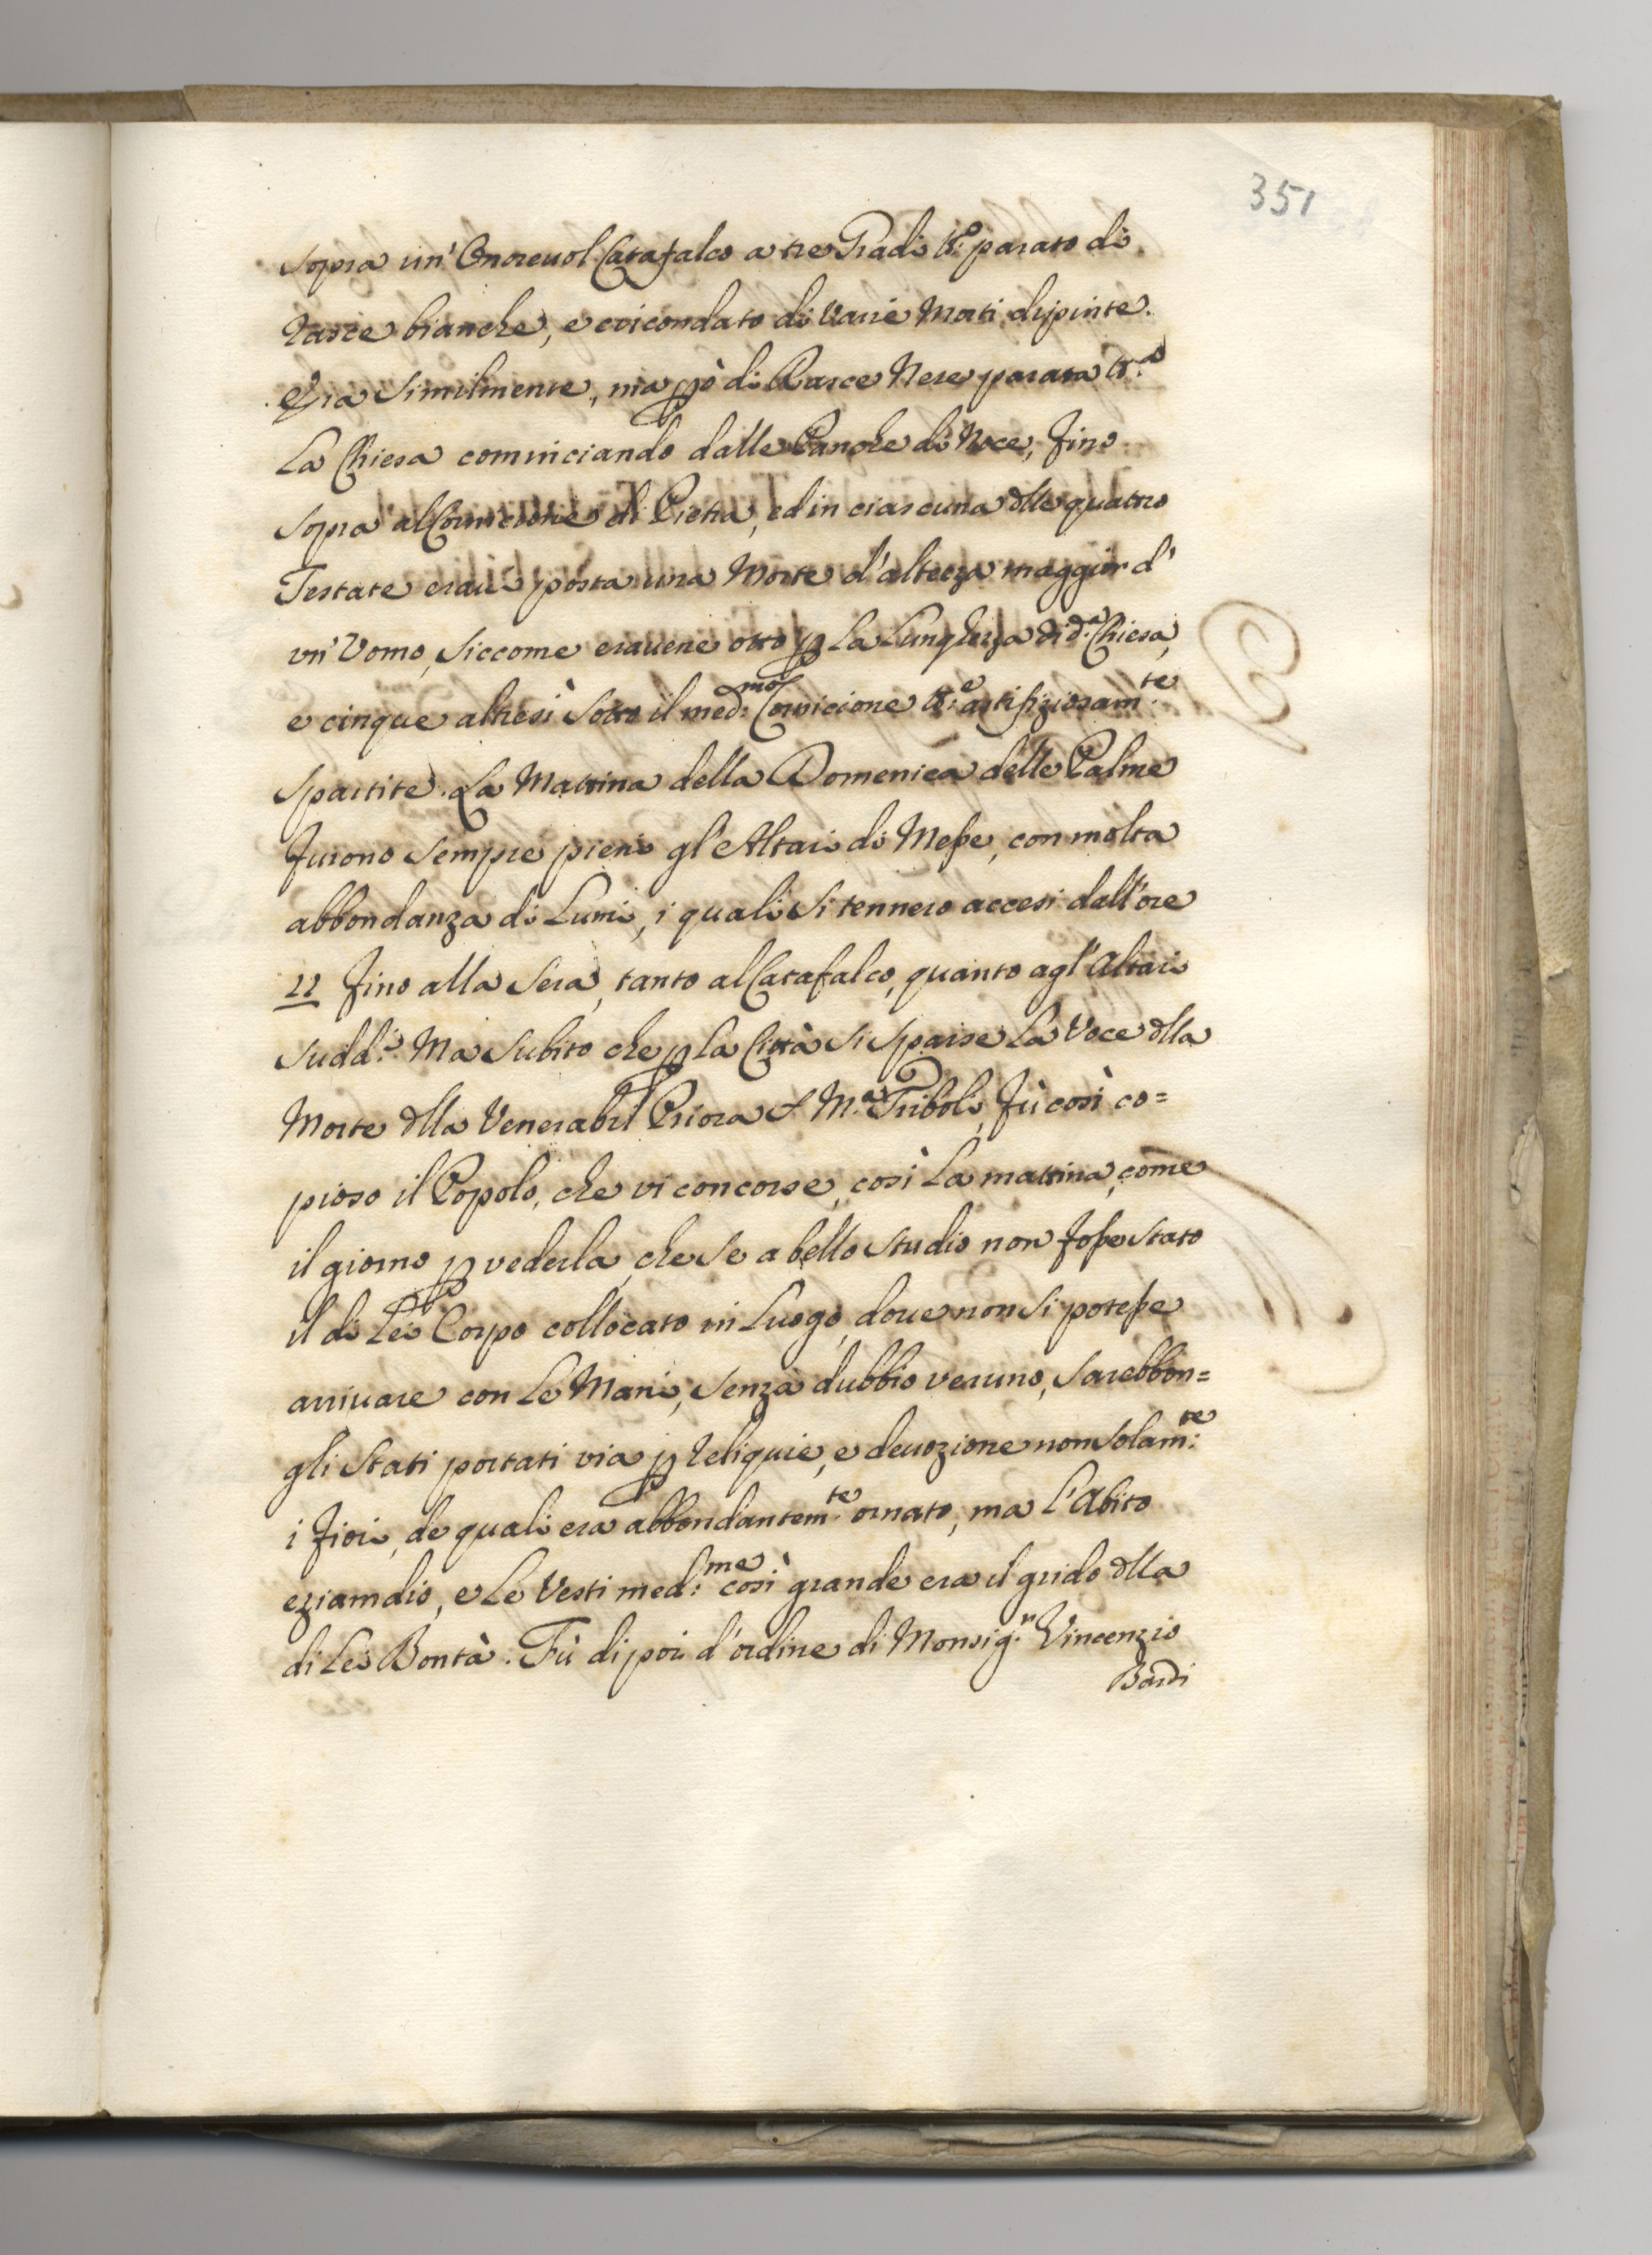 351
sopra un' Onorevol Catafalco a tre Gradi tt.º parato di
rasce bianche, e circondato di Varie Morti dipinte.
Era similmente, ma pp̃ò di Rasce Nere parata tt.ª
La Chiesa cominciando dalle Panche di Noce, fino
sopra al Cornicione di Pietra, ed in ciascuna dlle quattro
Testate eravi posta una Morte d'altezza maggior d'
un' Vomo, siccome eravene otto p La Lunghezza di d.ª Chiesa,
e cinque altresì sotto il med:mo Cornicione tt.e artifiziosam.te
spartite. La Mattina della Domenica delle Palme
furono sempre pieni gl'Altari di Messe, con molta
abbondanza di Lumi, i quali si tennero accesi dall'ore
22 fino alla sera, tanto al Catafalco, quanto agl'Altari
sudd.i Ma subito che p la Città si sparse La Voce dlla
Morte dlla Venerabil Priora S M.ª Triboli, fù così co=
pioso il Popolo, che vi concorse, così La mattina, come
il giorno p vederla, che se a bello studio non fosse stato
il di Lei Corpo collocato in Luogo, dove non si potesse
arrivare con Le Mani, senza dubbio veruno, sarebbon=
gli stati portati via p Reliquie, e devozione non solam:te
i fiori, de quali era abbondantem.te ornato, ma l'Abito
eziamdio, e Le Vesti med:me così grande era il grido dlla
di Lei Bontà. Fù di poi d'ordine di Monsig.r Vincenzio
Bardi